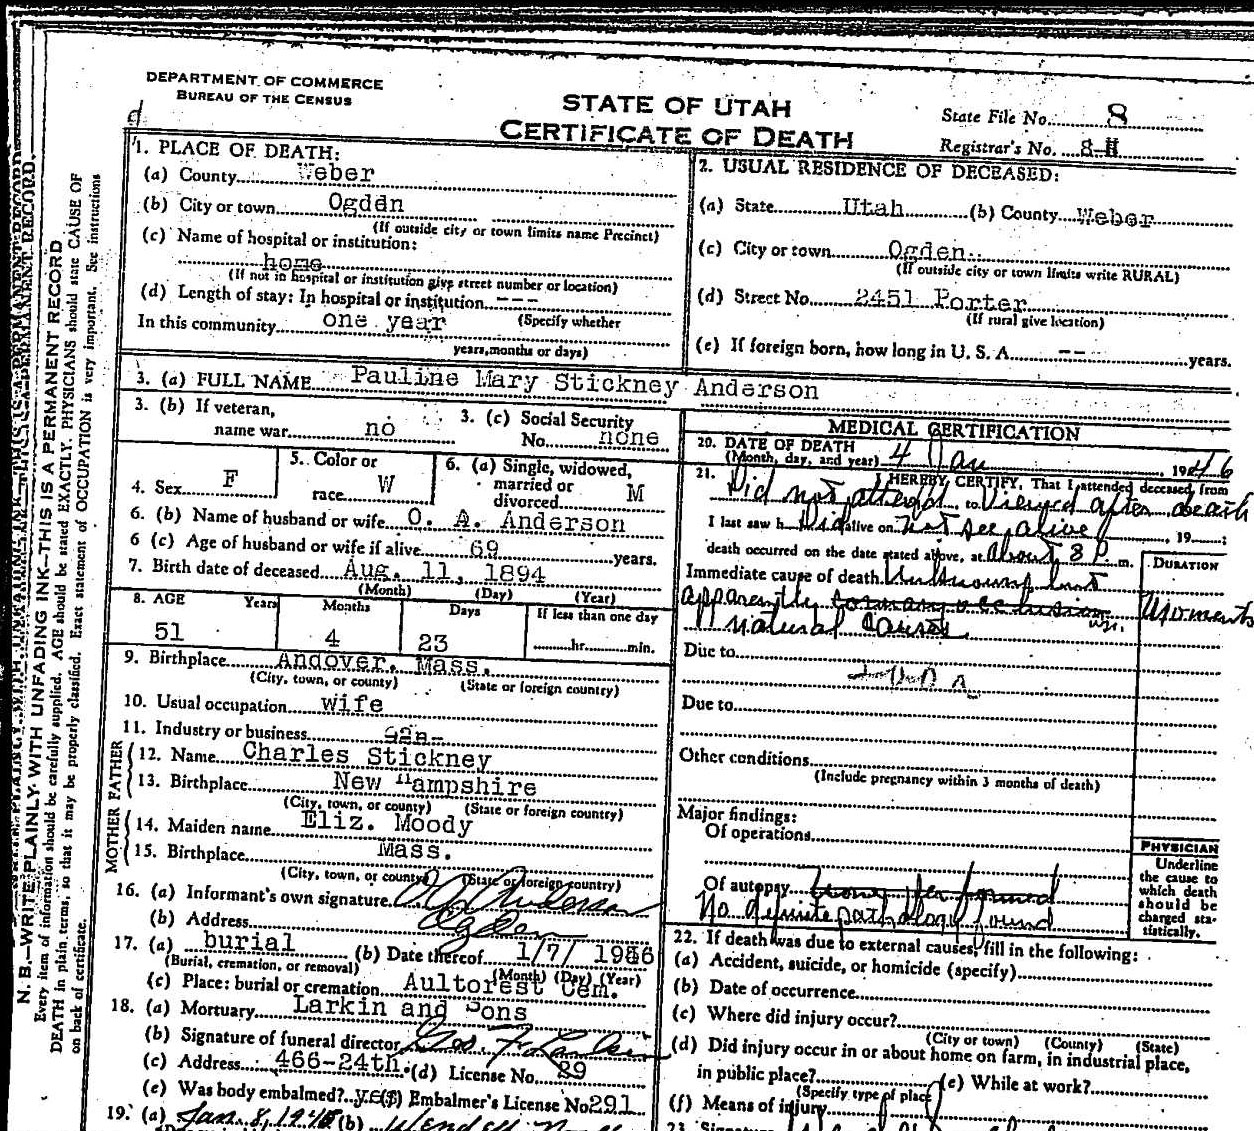 DEPARTMENT OF COMMERCE
BUREAU OF THE CENSUS
STATE OF UTAH
CERTIFICATE OF DEATH
State File No. 8
Registrar's No. 8
1. PLACE OF DEATH:
(a) County Weber
(b) City or town Ogden
(If outside city or town limits name Precinct)
(c) Name of hospital or institution:
home
(If not in hospital or institution give street number or location)
(d) Length of stay: In hospital or institution ---
In this community one year (Specify whether
years, months or days)
2. USUAL RESIDENCE OF DECEASED:
(a) State Utah (b) County Weber
(c) City or town Ogden
(If outside city or town limits write RURAL)
(d) Street No. 2451 Porter
(If rural give location)
(e) If foreign born, how long in U. S. A. -- years.
3. (a) FULL NAME Pauline Mary Stickney Anderson
3. (b) If veteran,
name war no
3. (c) Social Security
No. none
4. Sex F
5. Color or
race W
6. (a) Single, widowed,
married or
divorced M
6. (b) Name of husband or wife O. A. Anderson
6 (c) Age of husband or wife if alive 69 years.
7. Birth date of deceased Aug. 11, 1894
(Month) (Day) (Year)
8. AGE Years Months Days If less than one day
51 4 23 hr. min.
9. Birthplace Andover. Mass.
(City, town, or county) (State or foreign country)
10. Usual occupation wife
11. Industry or business
FATHER
12. Name Charles Stickney
13. Birthplace New Hampshire
(City, town, or county) (State or foreign country)
MOTHER
14. Maiden name Eliz. Moody
15. Birthplace Mass.
(City, town, or county) (State or foreign country)
16. (a) Informant's own signature O A Anderson
(b) Address Ogden
17. (a) burial (b) Date thereof 1/7/ 1946
(Burial, cremation, or removal) (Month) (Day) (Year)
(c) Place: burial or cremation Aultorest Cem.
18. (a) Mortuary Larkin and Sons
(b) Signature of funeral director Geo. F. Larkin
(c) Address 466-24th. (d) License No. 29
(e) Was body embalmed? yes (f) Embalmer's License No 291
19. (a) Jan. 8, 1946 (b) Wendell
MEDICAL CERTIFICATION
20. DATE OF DEATH
(Month, day, and year) 4 Jan , 1946
21. I HEREBY CERTIFY, That I attended deceased from
Did not attend to Viewed after death
I last saw h Did alive on not see alive , 19 ;
death occurred on the date stated above, at about 8 P m.
DURATION
Immediate cause of death Unknown but
apparently coronary occlusion Moments
natural causes
Due to
Due to
Other conditions
(Include pregnancy within 3 months of death)
Major findings:
Of operations
Of autopsy none performed
No definite pathology found
PHYSICIAN
Underline
the cause to
which death
should be
charged sta-
tistically.
22. If death was due to external causes, fill in the following:
(a) Accident, suicide, or homicide (specify)
(b) Date of occurrence
(c) Where did injury occur?
(City or town) (County) (State)
(d) Did injury occur in or about home on farm, in industrial place,
in public place? (e) While at work?
(Specify type of place)
(f) Means of injury
23. Signature
N. B.—WRITE PLAINLY WITH UNFADING INK—THIS IS A PERMANENT RECORD
Every item of information should be carefully supplied. AGE should be stated EXACTLY. PHYSICIANS should state CAUSE OF
DEATH in plain terms, so that it may be properly classified. Exact statement of OCCUPATION is very important. See instructions
on back of certificate.